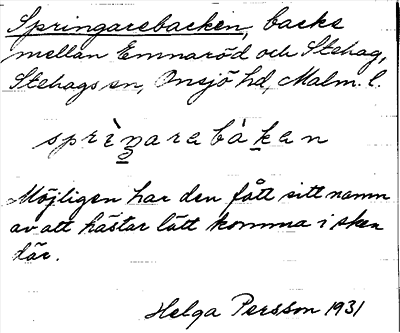 Springarebacken, backe
mellan Emmaröd och Stehag,
Stehags sn, Onsjö hd, Malm. l.
sprìŋarebàkan
Möjligen har den fått sitt namn
av att hästar lätt komma i sken
där.
Helga Persson 1931